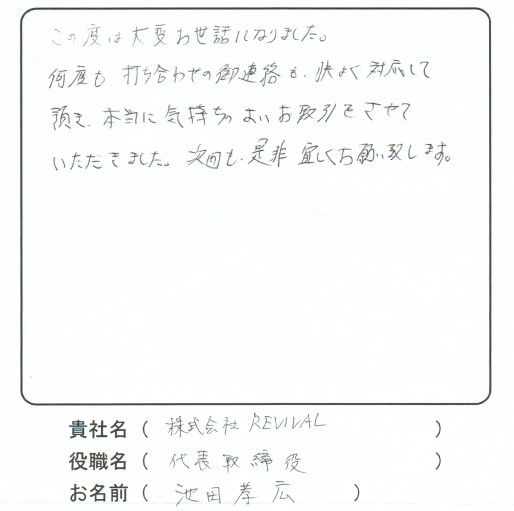 この度は大変お世話になりました。
何度も 打ち合わせの御連絡も、快よく対応して
頂き、本当に気持ちのよいお取引をさせて
いただきました。次回も、是非宜しくお願い致します。
貴社名 ( 株式会社 REVIVAL )
役職名 ( 代表取締役 )
お名前 ( 池田孝広 )